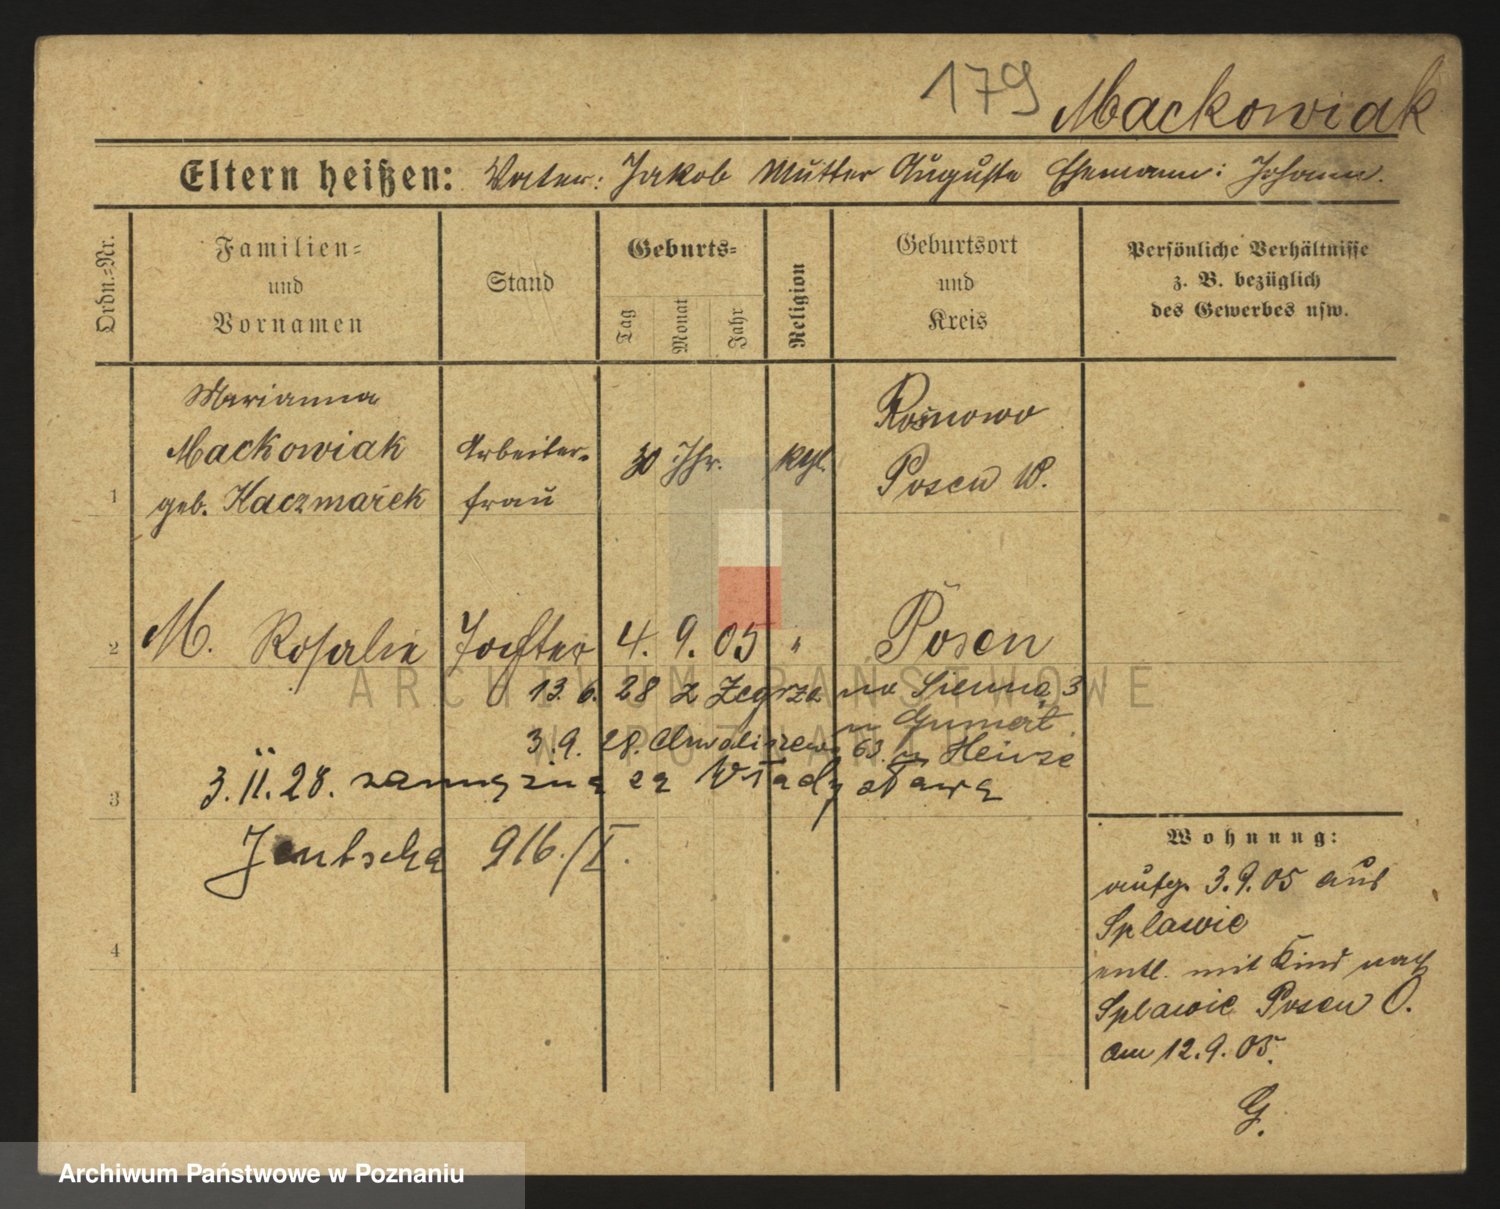 179 Mackowiak
Eltern heißen: Vater: Jakob Mutter Auguste Ehemann: Johann.
Ordn.=Nr.
Familien=
und
Vornamen
Stand
Geburts=
Tag
Monat
Jahr
Religion
Geburtsort
und
Kreis
Persönliche Verhältnisse
z. B. bezüglich
des Gewerbes usw.
Marianna
Mackowiak
geb. Kaczmarek
1
Arbeiter-
frau
30 Jhr.
ktl.
Rosnowo
Posen W.
2 M. Rosalie Tochter 4. 9. 05 " Posen
13. 6. 28 z Zegrza na Sienna 3
u Gumert.
3. 9. 28. Chwaliszewo 63. u Heinze
3. 11. 28. zamężna za Władysława
3
Jentscha 916./I.
4
Wohnung:
aufg. 3.9.05 aus
Splawie
entl. mit Kind nach
Splawie Posen O.
am 12.9.05.
G.
ARCHIWUM PAŃSTWOWE
W POZNANIU
Archiwum Państwowe w Poznaniu